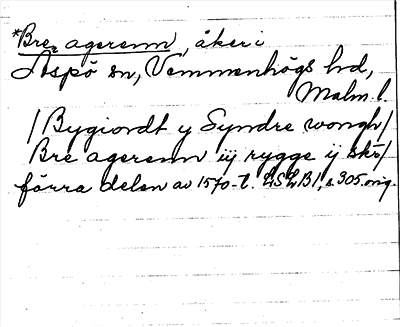 *Bre agerenn, åker i
Aspö sn, Vemmenhögs hd,
Malm. l.
/Bygiordt y Syndre wongh/
Bre agerenn iij rygge ij skr/
förra delen av 1570-t. LSLB1, s. 305. orig.